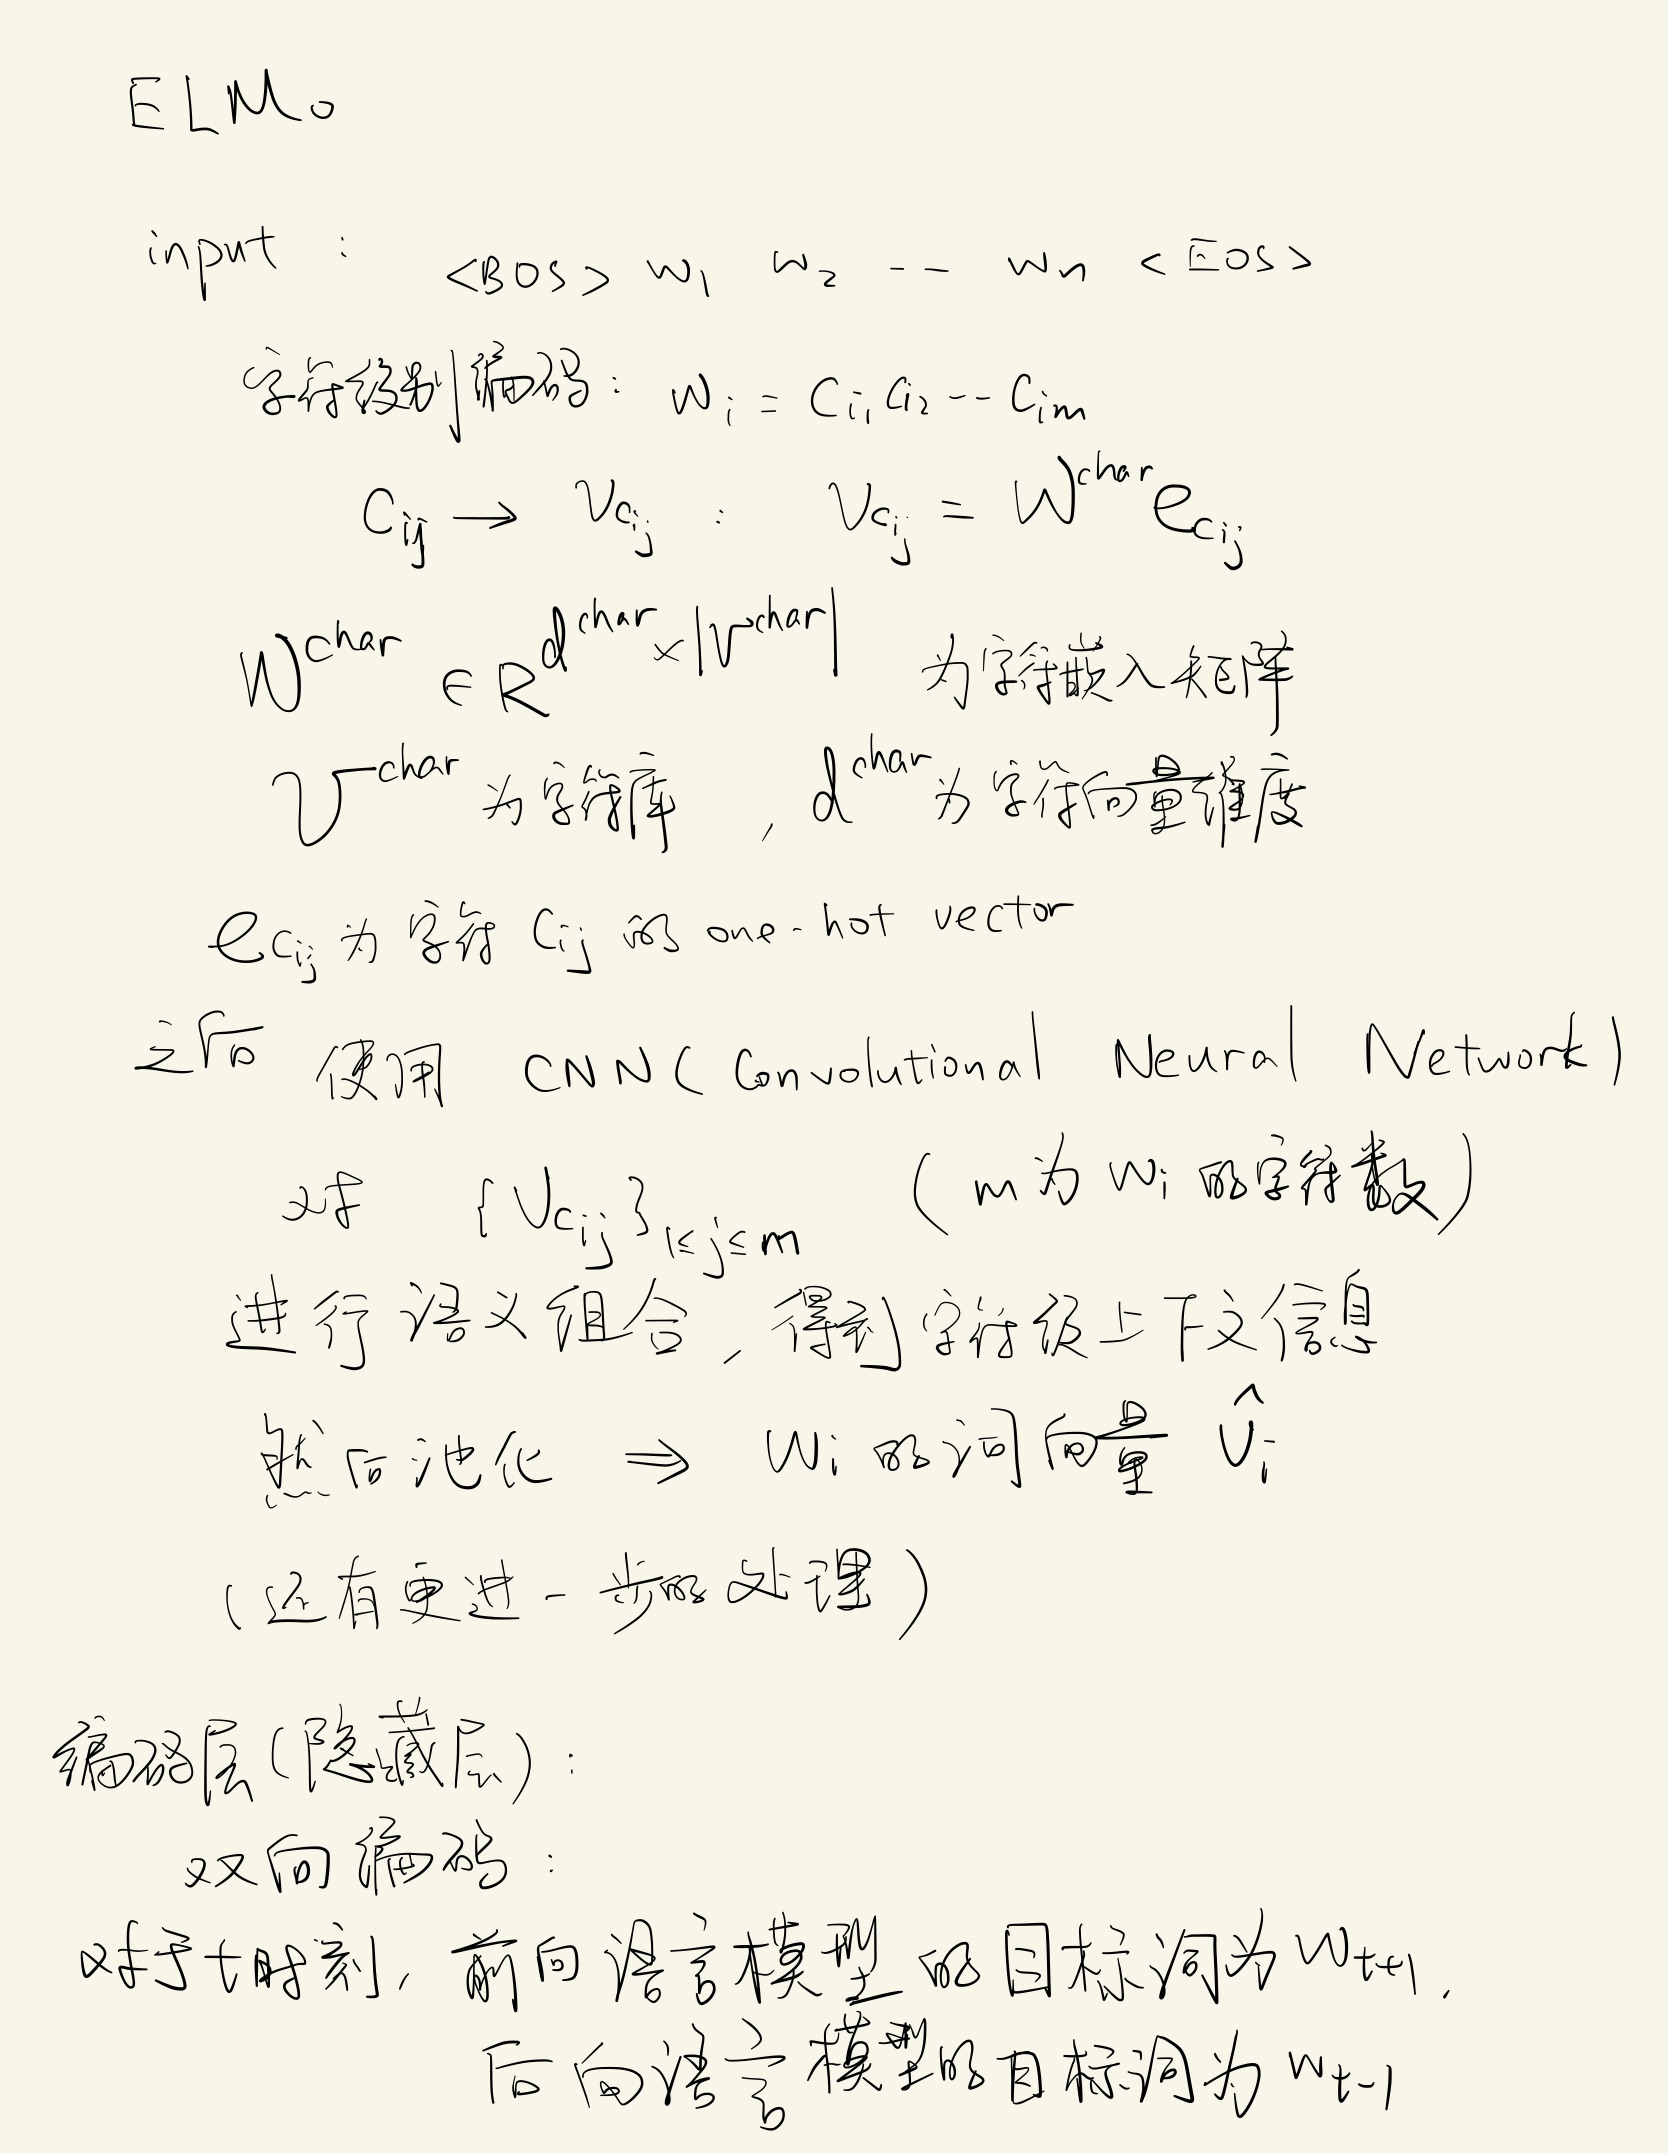 ELMo
input : <BOS> w₁ w₂ -- wₙ <EOS>
字符级别编码: wᵢ = Cᵢ₁ Cᵢ₂ -- Cᵢₘ
C_{ij} → V_{c_{ij}} : V_{c_{ij}} = W^{char} e_{c_{ij}}
W^{char} ∈ R^{d^{char} × |V^{char}|} 为字符嵌入矩阵
V^{char} 为字符库 , d^{char} 为字符向量维度
e_{c_{ij}} 为字符 C_{ij} 的 one-hot vector
之后 使用 CNN( Convolutional Neural Network )
对 {V_{c_{ij}}}_{1≤j≤m} (m 为 wᵢ 的字符数)
进行语义组合, 得到字符级上下文信息
然后池化 ⇒ wᵢ 的词向量 v̂ᵢ
(还有更进一步的处理)
编码层(隐藏层):
双向编码:
对于t时刻, 前向语言模型的目标词为 w_{t+1}.
后向语言模型的目标词为 w_{t-1}